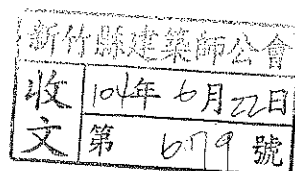 新竹縣建築師公會
收文
104年6月22日
第 6179 號